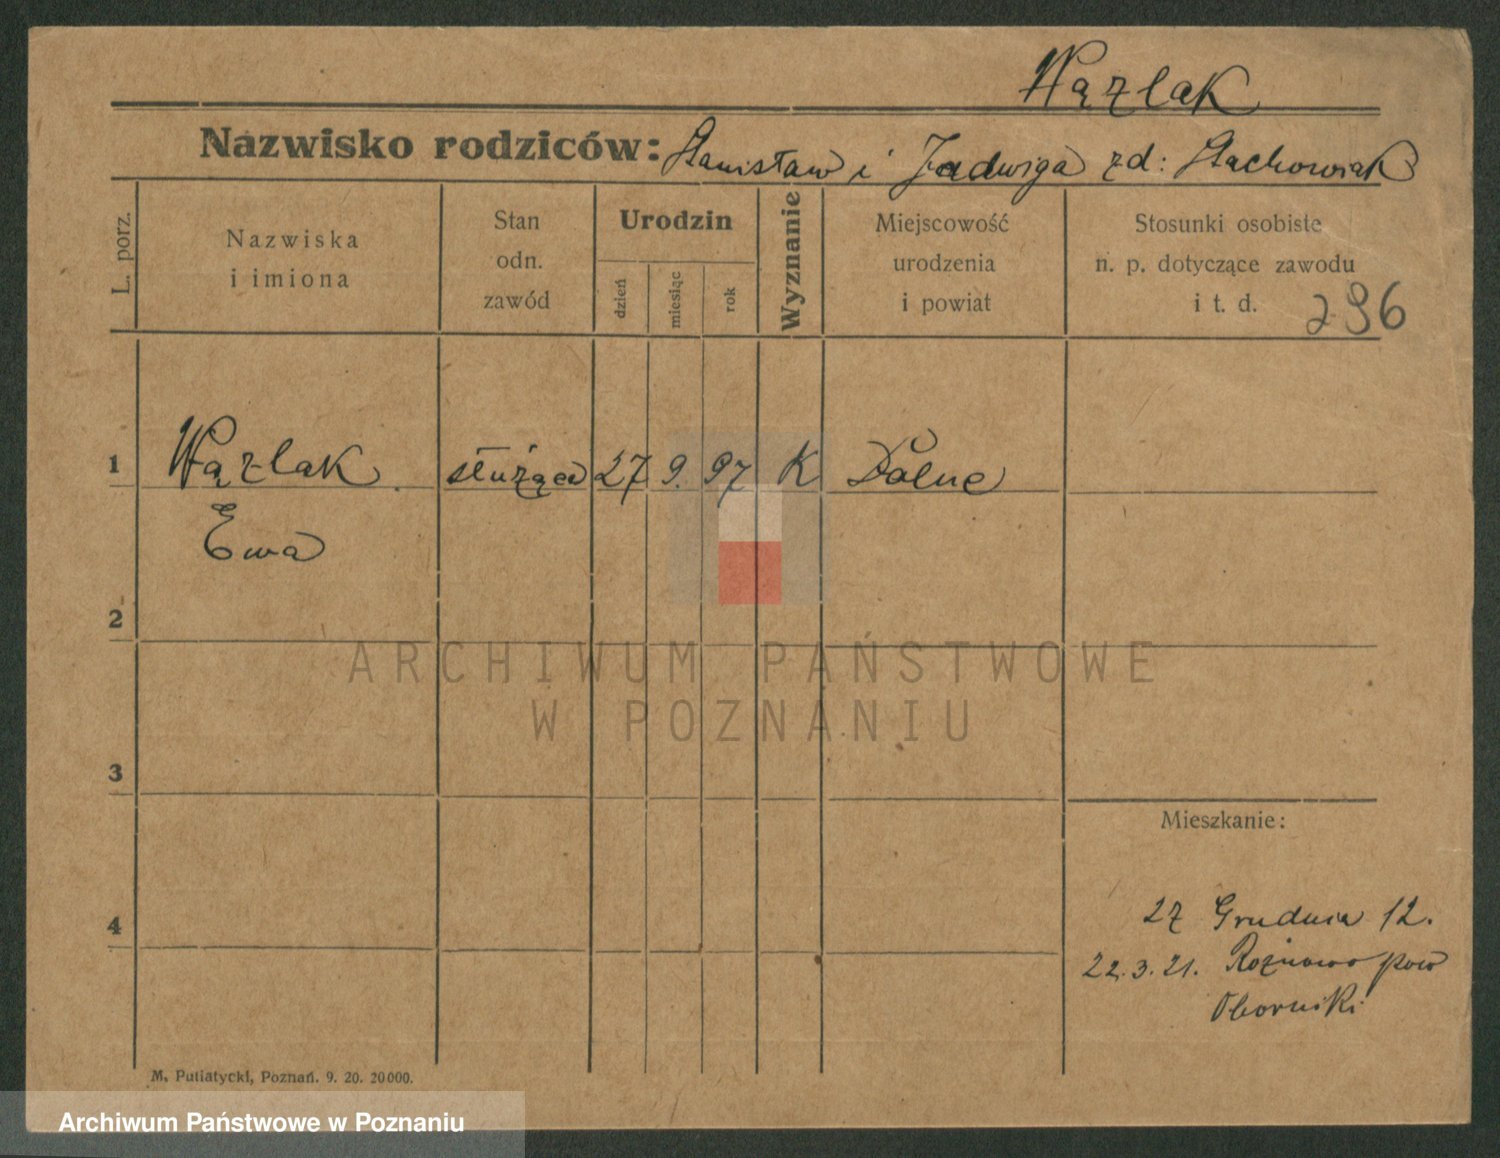 Wązlak
Nazwisko rodziców: Stanisław i Jadwiga zd: Stachowiak
L. porz.
Nazwiska
i imiona
Stan
odn.
zawód
Urodzin
dzień
miesiąc
rok
Wyznanie
Miejscowość
urodzenia
i powiat
Stosunki osobiste
n. p. dotyczące zawodu
i t. d.
296
1 Wązlak służąca 27 9. 97 K
Ewa
2
3
4
Mieszkanie:
27 Grudnia 12.
22.3.21. Rożnowo pow
Oborniki
M. Putiatycki, Poznań. 9. 20. 20000.
ARCHIWUM PAŃSTWOWE
W POZNANIU
Archiwum Państwowe w Poznaniu